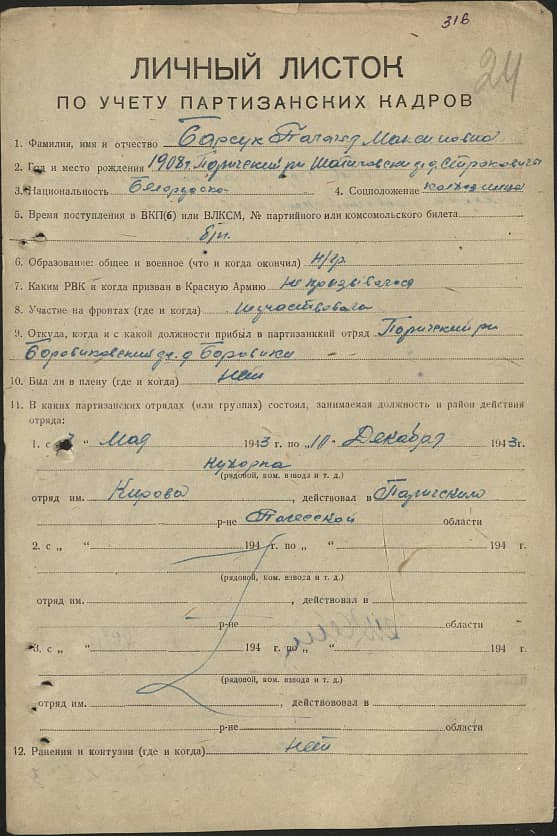 316
24
ЛИЧНЫЙ ЛИСТОК
ПО УЧЕТУ ПАРТИЗАНСКИХ КАДРОВ
1. Фамилия, имя и отчество Барсук Максимовна
2. Год и место рождения 1908 г. Паричский р-н
3. Национальность Белорусска 4. Соцположение колхозница
5. Время поступления в ВКП(б) или ВЛКСМ, № партийного или комсомольского билета
б/п.
6. Образование: общее и военное (что и когда окончил) н/гр.
7. Каким РВК и когда призван в Красную Армию не
8. Участие на фронтах (где и когда)
9. Откуда, когда и с какой должности прибыл в партизанккий отряд Паричский р-н
Боровиковский д. Боровики
10. Был ли в плену (где и когда) нет
11. В каких партизанских отрядах (или группах) состоял, занимаемая должность и район действия
отряда:
1. с „ “ Мая 1943 г. по „10“ Декабря 1943 г.
(рядовой, ком. взвода и т. д.)
отряд им. Кирова, действовал в Паричском
р-не Полесской области
2. с „ “ 194 г. по „ “ 194 г.
(рядовой, ком. взвода и т. д.)
отряд им. , действовал в
р-не области
3. с „ “ 194 г. по „ “ 194 г.
(рядовой, ком. взвода и т. д.)
отряд им. , действововал в
р-не области
12. Ранения и контузии (где и когда) нет